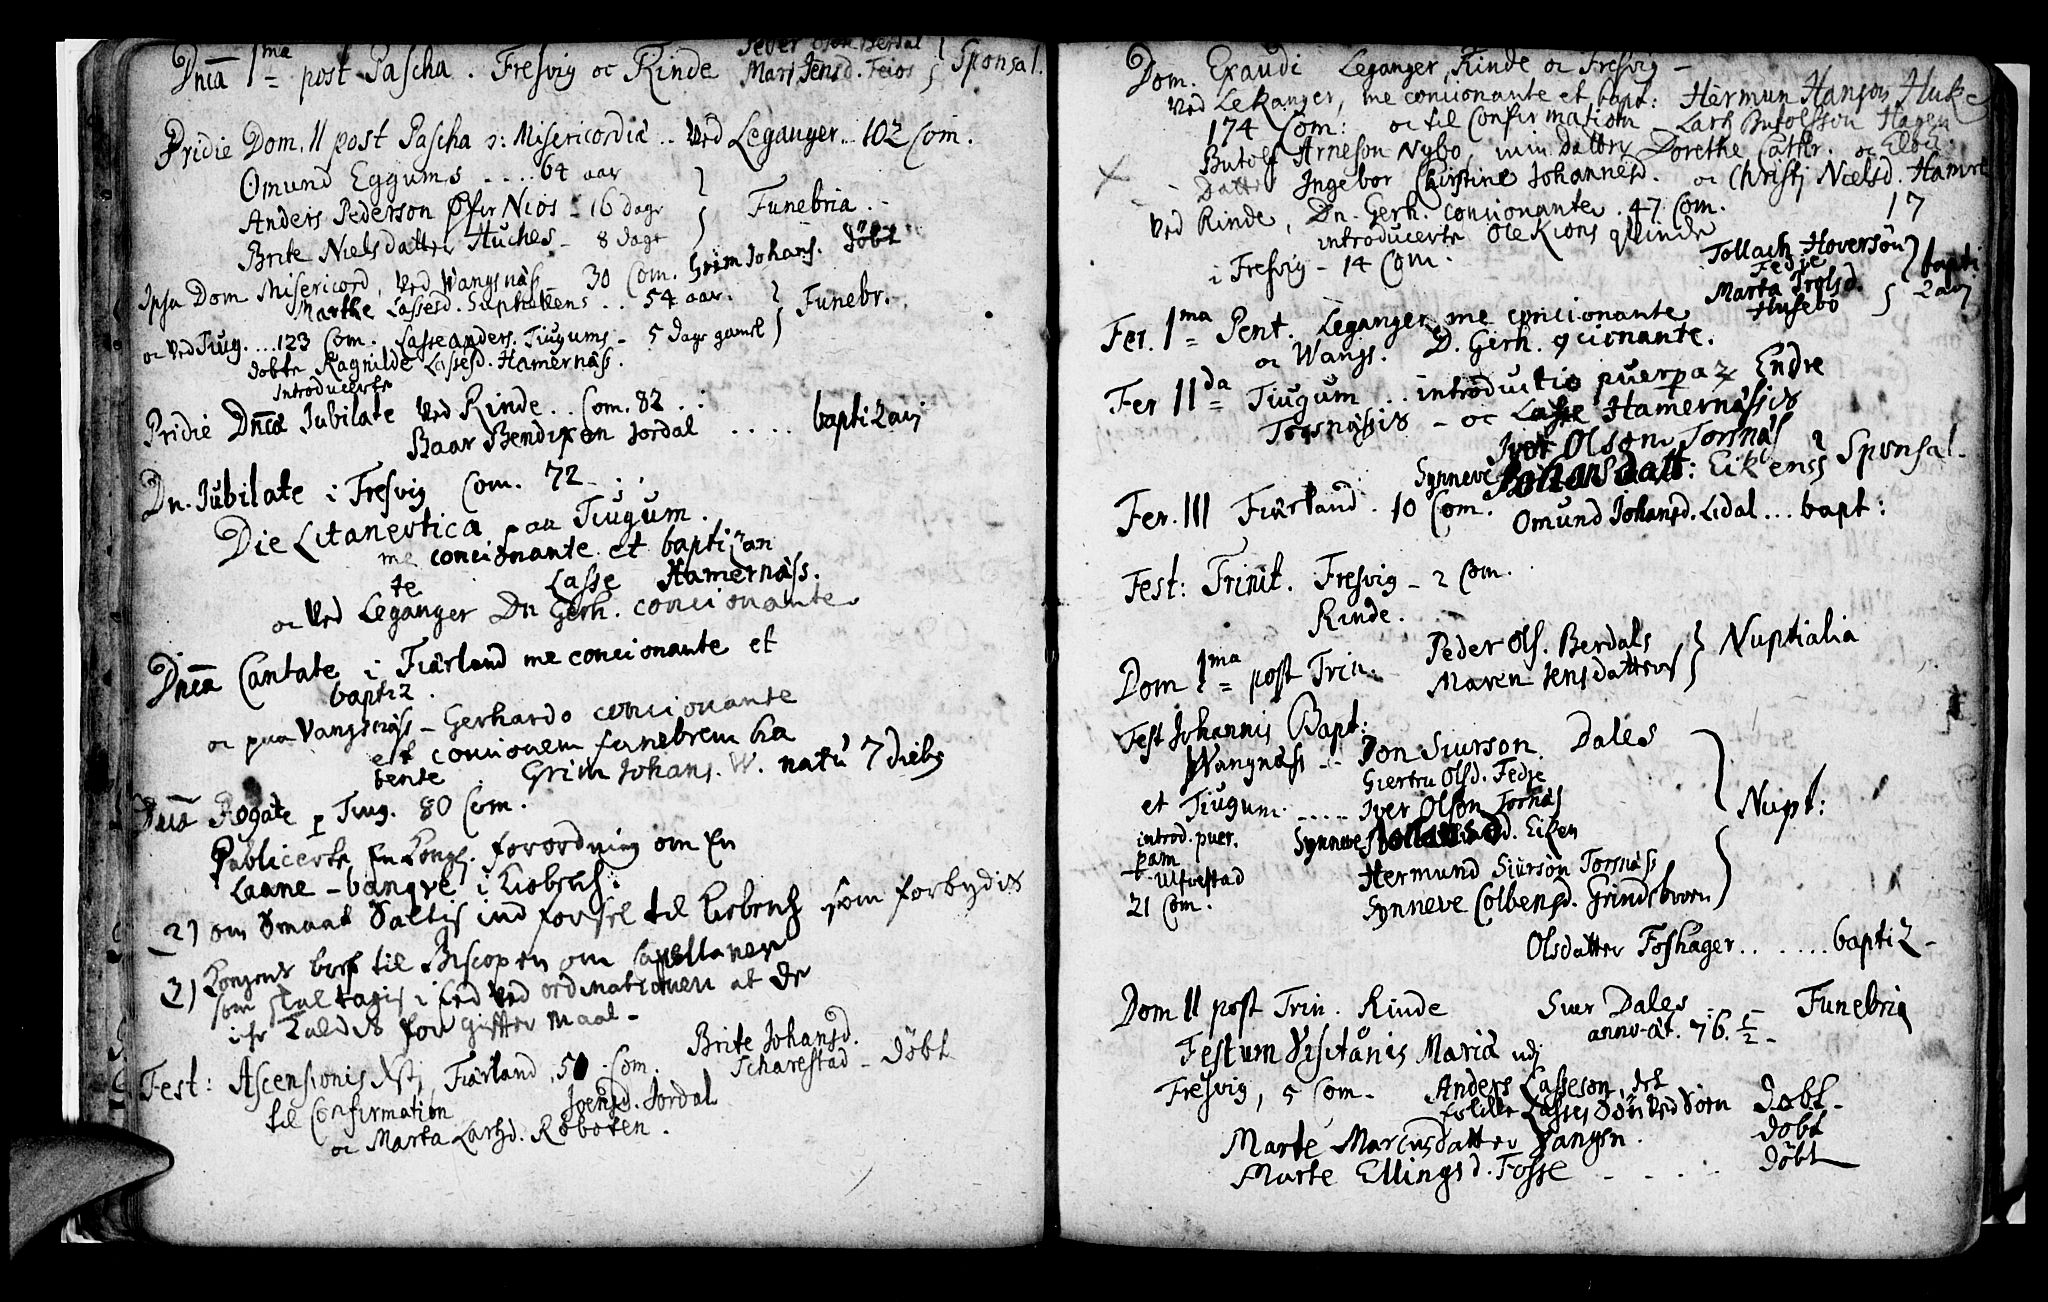 Dnca 1ma post Pascha. Fresvig oc Rinde Iever Olsn Berdal
Mari Jensd. Feios } Sponsal.
Pridie Dom. II post Pascha ɔ: Misericordiæ .. Ved Leganger .. 102 Com.
Omund Eggums .... 64 aar
Anders Pederson Øfer Nios - 16 dage } Funebria.
Brite Nielsdatter Huches - 8 dage
Ipsa Dom Misericord, Ved Wangsnäs 30 Com. Grim Johans. döbt
Marthe Lassesd. .. 54 aar. } Funebr.
oc ved Tiug. ... 123 Com. Lasse Anders. Tiugums - 5 dage gamel
dobte Ragnilde Lassesd. Hamernäss.
Introducerte
Pridie Dncæ Iubilate Ved Rinde .. Com. 82 ..
Baar Bendixon Jordal ..... baptizavj
Dn. Iubilate i Fresvig Com. 72 - . .
Die Litanevtica paa Tiugum.
me concionante et baptizan
te Lasse Hamernäss.
oc Ved Leganger Dn Gerh. concionante
Dnca Cantate i Fiärland me concionante et
baptiz.
oc paa Vangsnäss - Gerhardo concionante
et concionem funebrem ha
bente Grim Johans. W. natu 7 dieb
Dnca Rogate p Tiug. 80 Com.
Publicerte En Kongl. forordning om En
Laane - banqve i Kiobenh:
2) om Smaat Saltis ind forsel til Kiobenh som forbydis
3) Kongens bref til Biscopen om Capellaner
som skal tagis i Eed Ved ordinationen at de
icke kaldis for giftter maal -
Fest: Ascensionis Xstj Fiärland, 50 Com. Brite Johansd.
Scharestad - döbt
til Confirmation Joensd. Jordal
oc Marta Larsd. Röboten.
Dom. Exaudi Leganger, Rinde oc Fresvig -
Ved Lekanger, me concionante et bapt: Hermun Hanson Huke
174 Com: oc til Confirmation Lars Butolsson Hagen
Butolf Arneson Nybo, min datter Dorethe Cathr. oc
Datter Ingebor Christine Johannesd. oc Christj Nielsd. Hamre
Ved Rinde, Dn. Gerh. concionante. 47 Com. 17
introducerte Ole Kions qvinde
i Fresvig - 14 Com. Tollach Hoverson
Fedje } bapti
Marta Trolsd. zavj
Husebö
Fer. 1ma Pent. Leganger me concionante
oc Wangs. D. Gerh. qcionante.
Fer IIda Tiugum .. introductio puerpaz Endre
Torsnässis - oc Lasse Hamernässis
Iver Olson Torsnäs
Synneve Johansdatt: Eikens } Sponsal.
Fer. III Fiärland. 10 Com.
Omund Johansd. Lidal ... bapt:
Fest: Trinit. Fresvig - 2 Com.
Rinde.
Dom 1ma post Trin. Peder Ols. Berdals
Maren Jensdatters } Nuptialia
Fest Johannis Bapt:
Wangnäss - . Jon Siurson Dales
Giertru Olsd. Fedje
et Tiugum ..... Iver Olson Tornäs
introd. puer. Synneve Johansd. Eiken } Nupt:
pam
Ulfvestad Hermund Siurson Torsnäss
21 Com. Synneve Colbensd. Grindeboern
Olsdatter Foshager ....... baptiz -
Dom II post Trin. Rinde Siver Dales .. - Funebria
anno æt. 76. ½ -
Festum Visitanis Mariæ
Fresvig, 5 Com. Anders Lasseson, det
Lasses Sön Ved Söen Döbt -
Marte Marcusdatter Vangsn. döbt
Marte Ellingsd. Fosse - . . - döbt